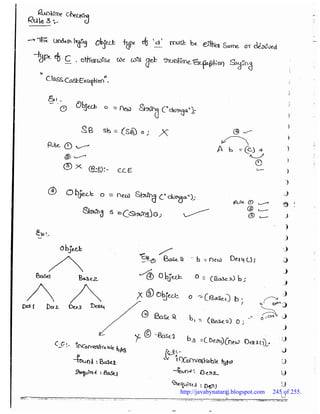 Runtime checking
Rule 3 :-
→ The underlying object type of 'd' must be either same or derived
type of C. otherwise we will get runtime Exception saying
"ClassCastException".
Ex:-
① Object o = new String("durga");
SB sb = (SB) o; X
Rule ① ✓
② ✓
③ X (R.E):- CCE
A b = (C) d
② Object o = new String("durga");
String s = (String) o; ✓
Rule ① ✓
② ✓
③ ✓
Ex:-
Object
Base1 Base2
Der1 Der2 Der3 Der4
Base2 b = new Der4();
✓ ① Object o = (Base2) b;
X ② Object o = (Base1) b;
✓ ③ Base2 b1 = (Base2) o;
X ④ Base1 b3 = (Der1)(new Der2());
C.E:- inconvertible types
found : Base2
required : Base1
C.E:-
inconvertible types
found: Der2
required: Der1
http://javabynataraj.blogspot.com 245 of 255.